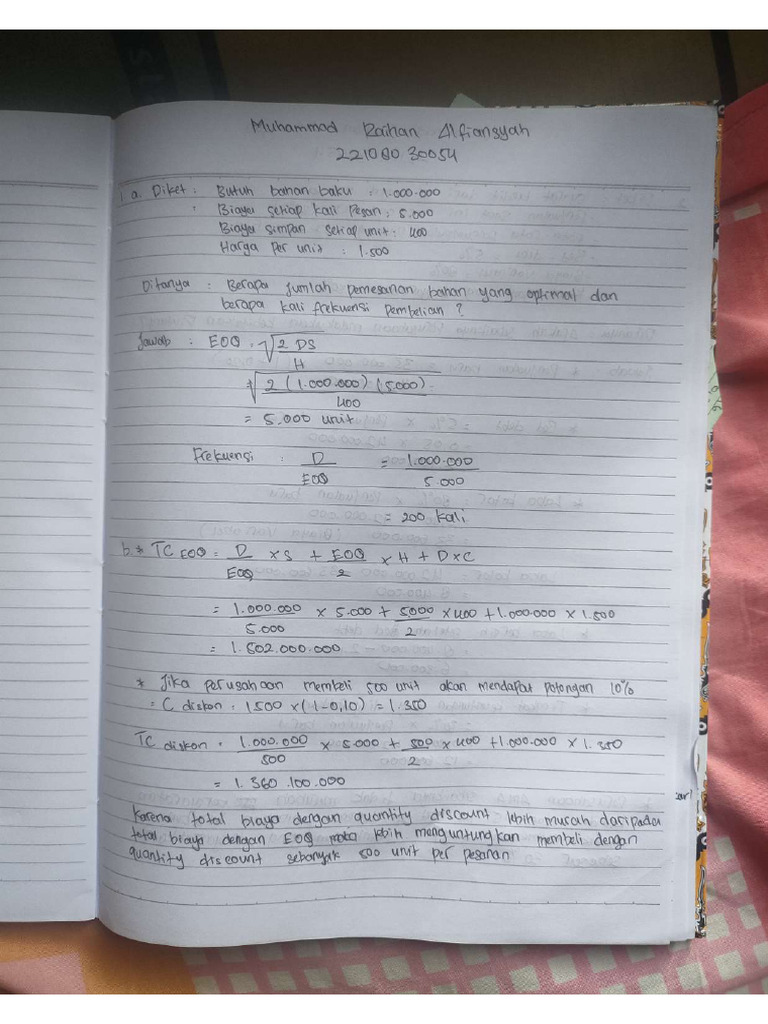 Muhammad Raihan Alfiansyah
22108030054
1 a. Diket : Butuh bahan baku : 1.000.000
Biaya setiap kali Pesan : 5.000
Biaya simpan setiap unit : 400
Harga Per unit : 1.500
Ditanya : Berapa jumlah pemesanan bahan yang optimal dan
berapa kali frekuensi Pembelian ?
Jawab : EOQ = √ 2 DS
H
√ 2 (1.000.000) (5.000)
400
= 5.000 unit
Frekuensi : D = 1.000.000
EOQ 5.000
= 200 kali
b * TC EOQ = D x S + EOQ x H + D x C
EOQ 2
= 1.000.000 x 5.000 + 5000 x 400 + 1.000.000 x 1.500
5.000 2
= 1.502.000.000
* Jika perusahaan membeli 500 unit akan mendapat potongan 10%
= C diskon : 1500 x (1-0,10) = 1.350
TC diskon = 1.000.000 x 5.000 + 500 x 400 + 1.000.000 x 1.350
500 2
= 1.360.100.000
Karena total biaya dengan quantity discount lebih murah daripada
total biaya dengan EOQ maka lebih menguntungkan membeli dengan
quantity discount sebanyak 500 unit per pesanan